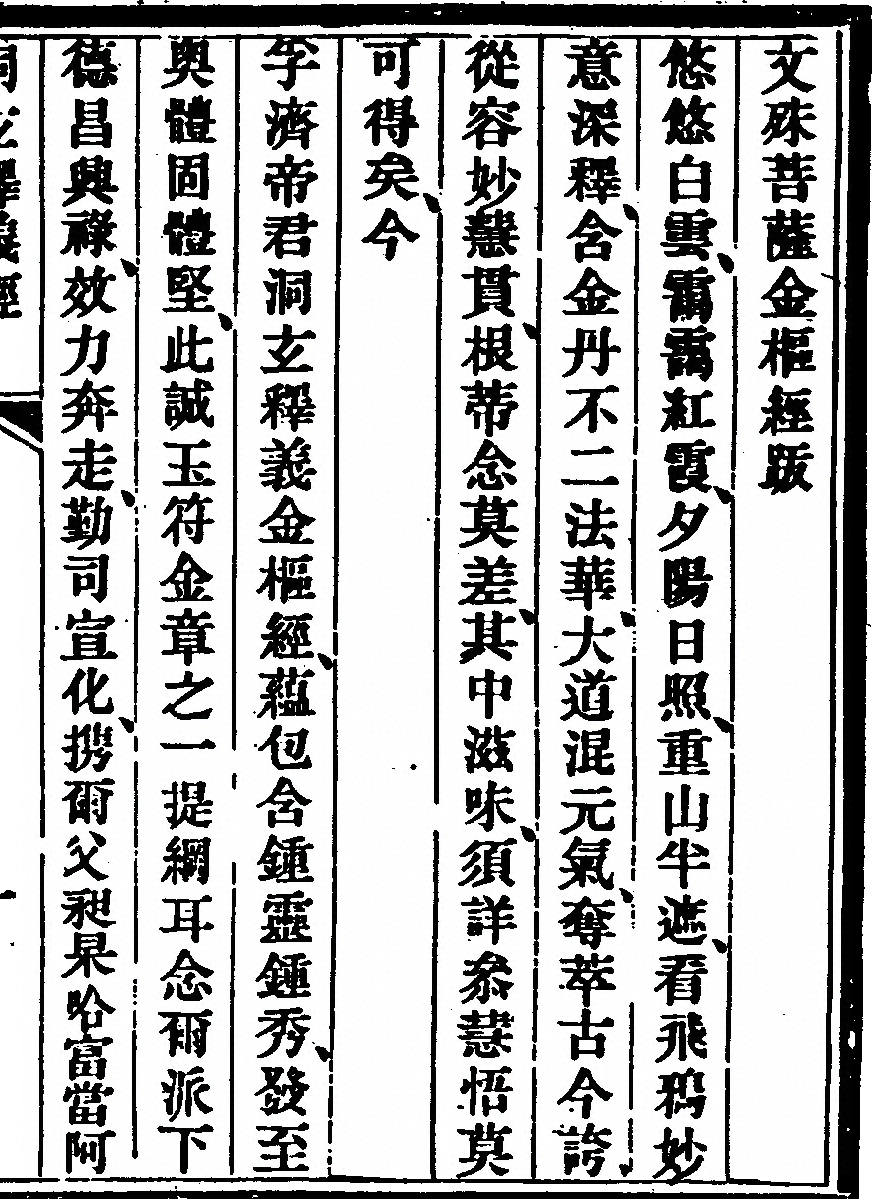 文殊菩薩金樞經跋
悠悠白雲靄靄紅霞夕陽日照重山半遮看飛鴉妙
意深釋含金丹不二法華大道混元氣奪萃古今誇
從容妙慧貫根蒂念莫差其中滋味須詳叅慧悟莫
可得矣今
孚濟帝君洞玄釋義金樞經蘊包含鍾靈鍾秀發至
輿體固體堅此誠玉符金章之一提綱耳念爾派下
德昌興祿效力奔走勤司宣化携爾父昶杲哈富當阿
洞玄釋義經